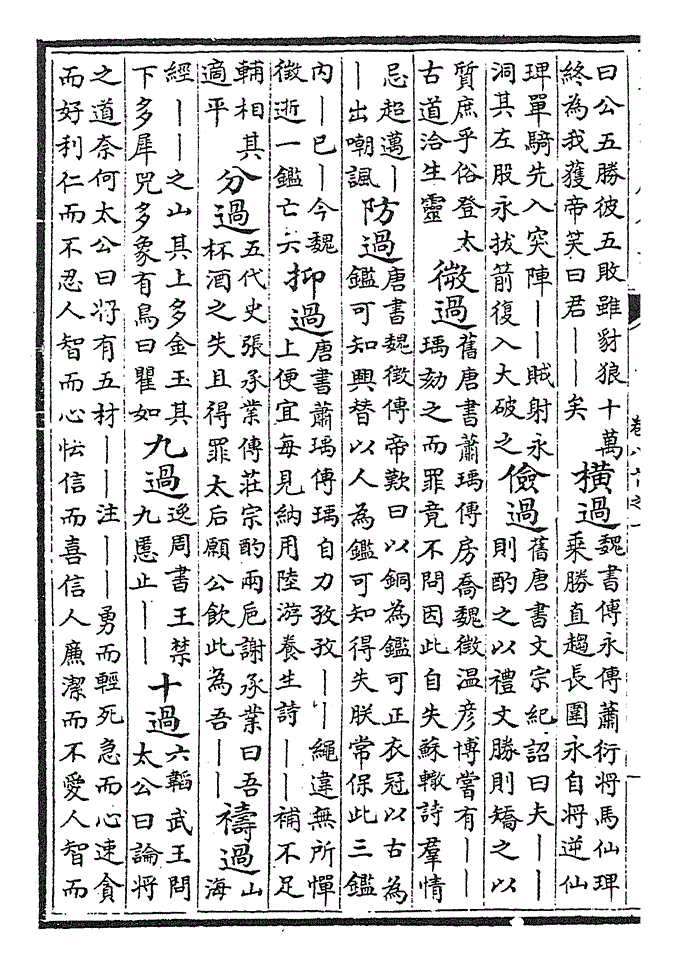 曰公五勝彼五敗雖豺狼十萬
終為我獲帝笑曰君||矣
橫過
魏書傅永傳蕭衍將馬仙琕
乘勝直趨長圍永自將逆仙
琕單騎先入突陣||賊射永
洞其左股永拔箭復入大破之
儉過
舊唐書文宗紀詔曰夫||
則酌之以禮文勝則矯之以
質庶乎俗登太
古道洽生靈
微過
舊唐書蕭瑀傳房喬魏徵温彥博嘗有||
瑀劾之而罪竟不問因此自失蘇轍詩羣情
忌超邁|
|出嘲諷
防過
唐書魏徵傳帝歎曰以銅為鑑可正衣冠以古為
鑑可知興替以人為鑑可知得失朕常保此三鑑
內|已|今魏
徵逝一鑑亡六
抑過
唐書蕭瑀傳瑀自力孜孜||繩違無所憚
上便宜每見納用陸游養生詩||補不足
輔相其
適平
分過
五代史張承業傳莊宗酌兩巵謝承業曰吾
杯酒之失且得罪太后願公飲此為吾||
禱過
山
海
經||之山其上多金玉其
下多犀兕多象有鳥曰瞿如
九過
逸周書王禁
九慝止||
十過
六韜武王問
太公曰論將
之道奈何太公曰将有五材||注||勇而輕死急而心速貪
而好利仁而不忍人智而心怯信而喜信人廉潔而不愛人智而